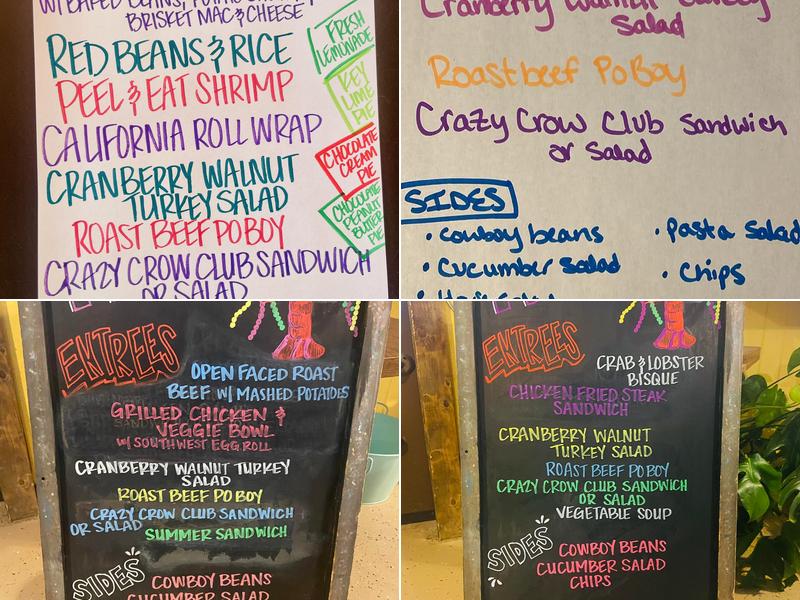 BRISKET MAC & CHEESE
RED BEANS & RICE
PEEL & EAT SHRIMP
CALIFORNIA ROLL WRAP
CRANBERRY WALNUT
TURKEY SALAD
ROAST BEEF PO BOY
CRAZY CROW CLUB SANDWICH
OR SALAD
FRESH
LEMONADE
KEY
LIME
PIE
CHOCOLATE
CREAM
PIE
CHOCOLATE
PEANUT
BUTTER
PIE
Cranberry Walnut Turkey
Salad
Roastbeef PoBoy
Crazy Crow Club Sandwich
or Salad
SIDES
• Cowboy beans
• Cucumber Salad
• Pasta Salad
• Chips
ENTREES
OPEN FACED ROAST
BEEF W/ MASHED POTATOES
GRILLED CHICKEN &
VEGGIE BOWL
W/ SOUTHWEST EGG ROLL
CRANBERRY WALNUT TURKEY
SALAD
ROAST BEEF PO BOY
CRAZY CROW CLUB SANDWICH
OR SALAD
SUMMER SANDWICH
SIDES
COWBOY BEANS
CUCUMBER SALAD
ENTREES
CRAB & LOBSTER
BISQUE
CHICKEN FRIED STEAK
SANDWICH
CRANBERRY WALNUT
TURKEY SALAD
ROAST BEEF PO BOY
CRAZY CROW CLUB SANDWICH
OR SALAD
VEGETABLE SOUP
SIDES
COWBOY BEANS
CUCUMBER SALAD
CHIPS